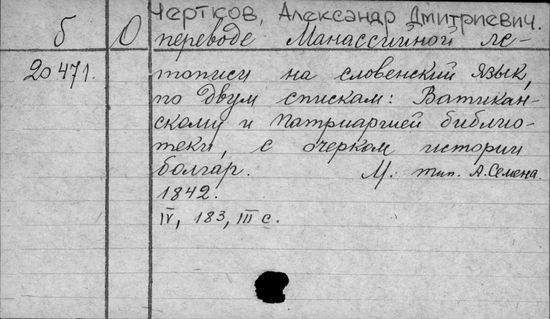 Чертков, Александр Дмитриевич.
б О переводе Манассииной ле-
20471. тописи на словенский язык,
по двум спискам: Ватикан-
скому и Патриаршей библио-
теки, с очерком истории
болгар. М. тип. А. Семена.
1842.
IV, 183, III с.